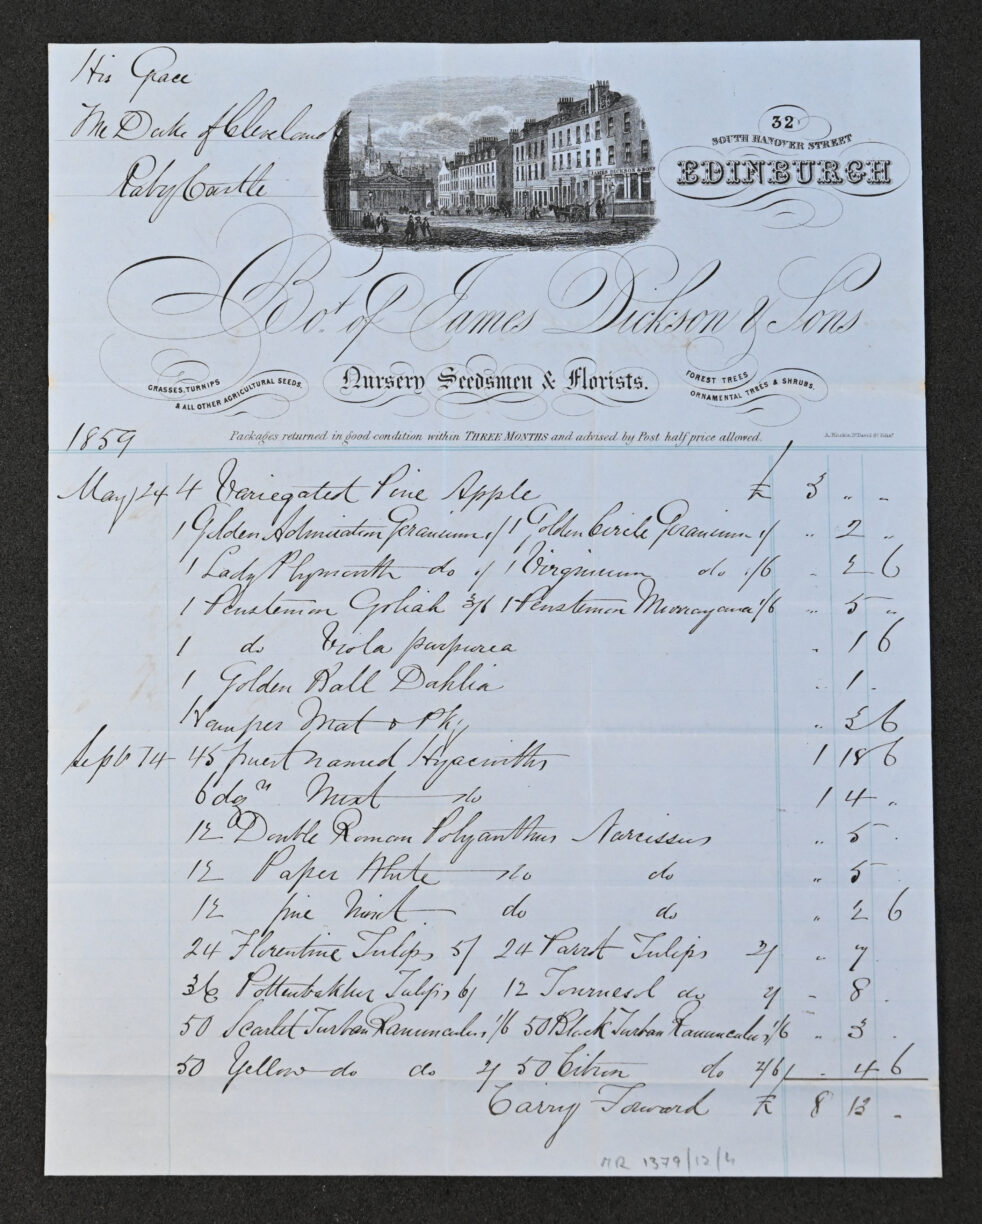 His Grace
The Duke of Cleveland
Raby Castle
32
SOUTH HANOVER STREET
EDINBURGH
Bot. of James Dickson & Sons
GRASSES, TURNIPS
& ALL OTHER AGRICULTURAL SEEDS.
Nursery Seedsmen & Florists.
FOREST TREES
ORNAMENTAL TREES & SHRUBS.
1859
Packages returned in good condition within THREE MONTHS and advised by Post half price allowed.
May 24 4 Variegated Pine Apple £ 3 " "
1 Golden Admiration Geranium 1/ 1 Golden Circle Geranium 1/ " 2 "
1 Lady Plymouth do 1/ 1 Virginium do 1/6 " 2 6
1 Penstemon Goliah 3/6 1 Penstemon Murrayana 1/6 " 5 "
1 do Viola purpurea " 1 6
1 Golden Ball Dahlia " 1 "
1 Hamper Mat & Pkg " 3 6
Sept 14 45 finest named Hyacinths 1 18 6
6 dozn Mixt do 1 4 "
12 Double Roman Polyanthus Narcissus " 5 "
12 Paper White do do " 5 "
12 fine Mixt do do " 2 6
24 Florentine Tulips 5/ 24 Parrot Tulips 2/ " 7 "
36 Pottenbakker Tulips 6/ 12 Tournesol do 2/ " 8 "
50 Scarlet Turban Ranunculus 1/6 50 Black Turban Ranunculus 1/6 " 3 "
50 Yellow do do 2/ 50 Citron do 2/6 " 4 6
Carry Forward £ 8 13 "
MR 1379/12/4